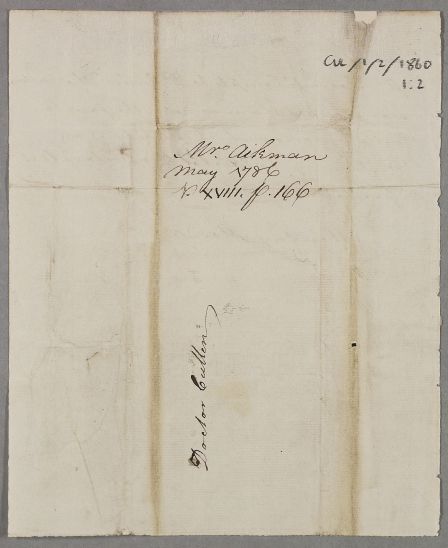 CUL/1/2/1860
1:2
Mrs Aikman
May 1786
V. XVIII. f. 166
Doctor Cullen